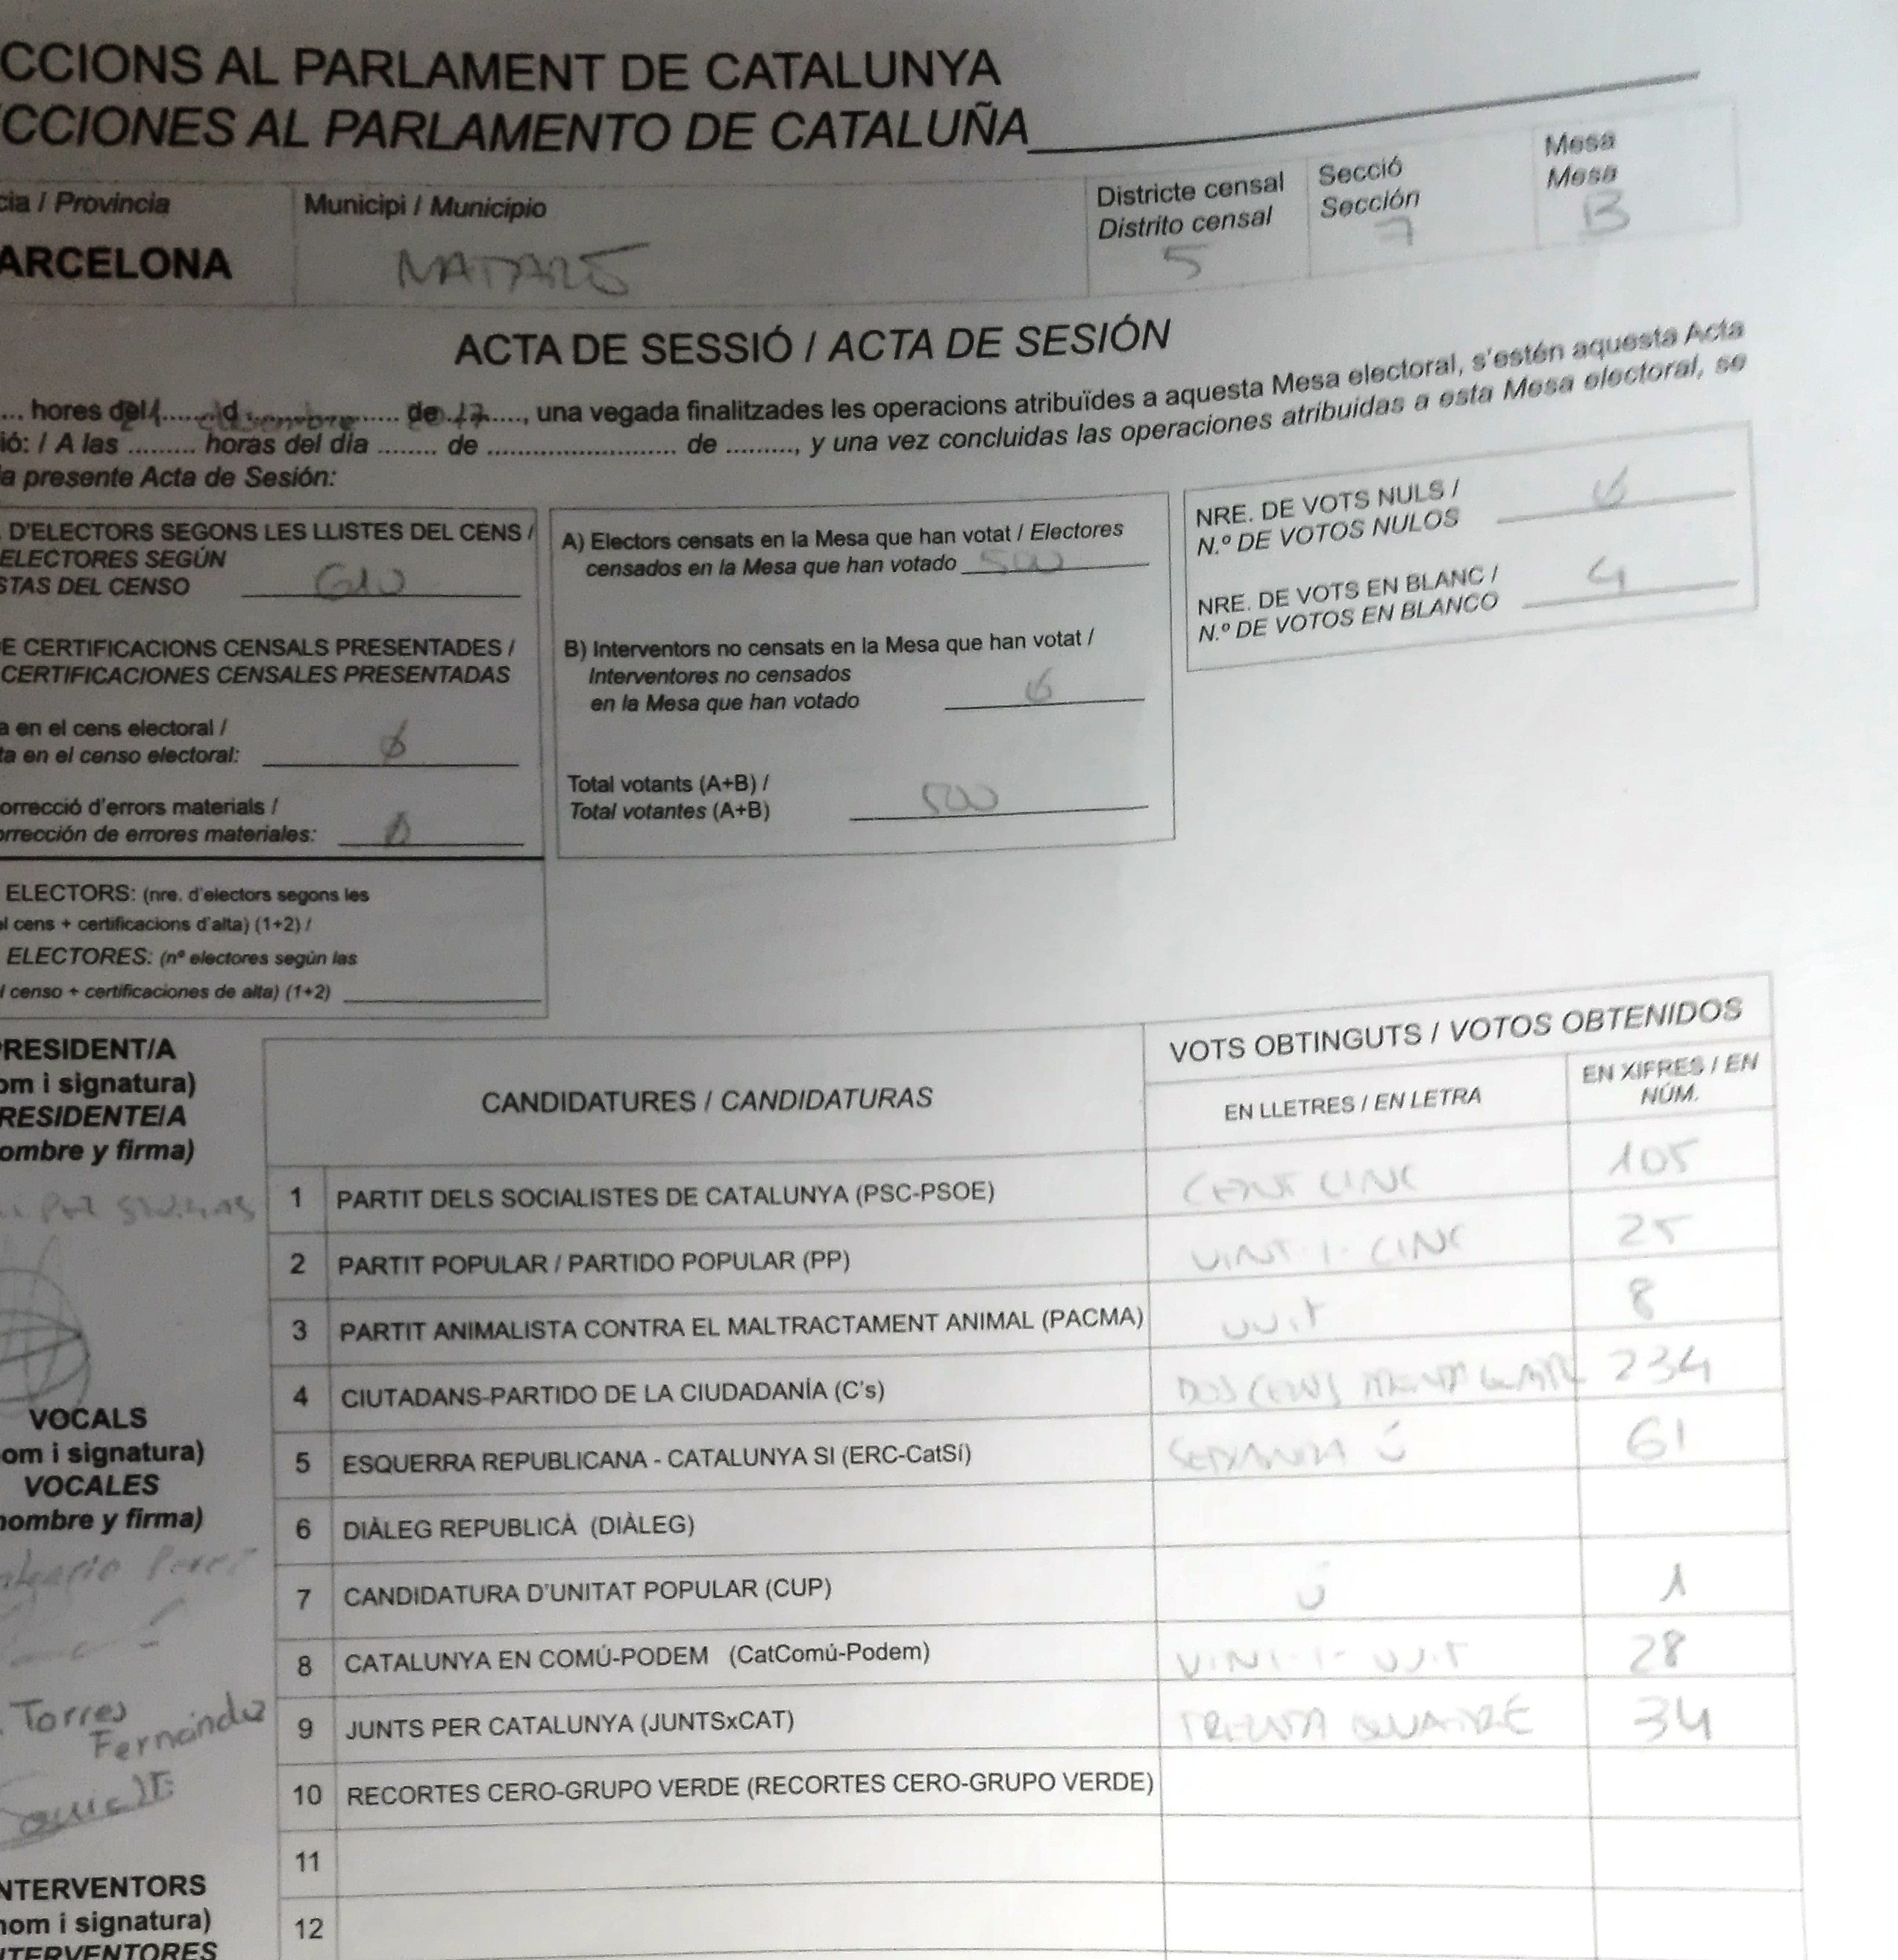 CCIONS AL PARLAMENT DE CATALUNYA
CCIONES AL PARLAMENTO DE CATALUÑA
cia / Provincia
ARCELONA
Municipi / Municipio
MATARÓ
Districte censal
Distrito censal
5
Secció
Sección
7
Mesa
Mesa
B
ACTA DE SESSIÓ / ACTA DE SESIÓN
... hores del 21 d desembre de 2017, una vegada finalitzades les operacions atribuïdes a aquesta Mesa electoral, s'estén aquesta Acta
ió: / A las ......... horas del día ........ de .......................... de ........., y una vez concluidas las operaciones atribuidas a esta Mesa electoral, se
a presente Acta de Sesión:
D'ELECTORS SEGONS LES LLISTES DEL CENS /
ELECTORES SEGÚN
STAS DEL CENSO 610
E CERTIFICACIONS CENSALS PRESENTADES /
CERTIFICACIONES CENSALES PRESENTADAS
a en el cens electoral /
ta en el censo electoral: Ø
orrecció d'errors materials /
orrección de errores materiales: Ø
ELECTORS: (nre. d'electors segons les
el cens + certificacions d'alta) (1+2) /
ELECTORES: (nº electores según las
l censo + certificaciones de alta) (1+2)
A) Electors censats en la Mesa que han votat / Electores
censados en la Mesa que han votado 500
B) Interventors no censats en la Mesa que han votat /
Interventores no censados
en la Mesa que han votado Ø
Total votants (A+B) /
Total votantes (A+B) 500
NRE. DE VOTS NULS /
N.º DE VOTOS NULOS Ø
NRE. DE VOTS EN BLANC /
N.º DE VOTOS EN BLANCO 4
RESIDENT/A
om i signatura)
RESIDENTE/A
ombre y firma)
VOCALS
om i signatura)
VOCALES
nombre y firma)
Perez
Torres
Fernández
NTERVENTORS
nom i signatura)
TERVENTORES
CANDIDATURES / CANDIDATURAS
VOTS OBTINGUTS / VOTOS OBTENIDOS
EN LLETRES / EN LETRA
EN XIFRES / EN
NÚM.
1 PARTIT DELS SOCIALISTES DE CATALUNYA (PSC-PSOE) CENT CINC 105
2 PARTIT POPULAR / PARTIDO POPULAR (PP) VINT-I-CINC 25
3 PARTIT ANIMALISTA CONTRA EL MALTRACTAMENT ANIMAL (PACMA) VUIT 8
4 CIUTADANS-PARTIDO DE LA CIUDADANÍA (C's) DOSCENS TRENTA QUATRE 234
5 ESQUERRA REPUBLICANA - CATALUNYA SI (ERC-CatSí) SEIXANTA Ú 61
6 DIÀLEG REPUBLICÀ (DIÀLEG)
7 CANDIDATURA D'UNITAT POPULAR (CUP) Ú 1
8 CATALUNYA EN COMÚ-PODEM (CatComú-Podem) VINT-I-VUIT 28
9 JUNTS PER CATALUNYA (JUNTSxCAT) TRENTA QUATRE 34
10 RECORTES CERO-GRUPO VERDE (RECORTES CERO-GRUPO VERDE)
11
12